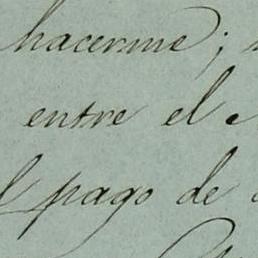 hacerme;
entre el
pago de